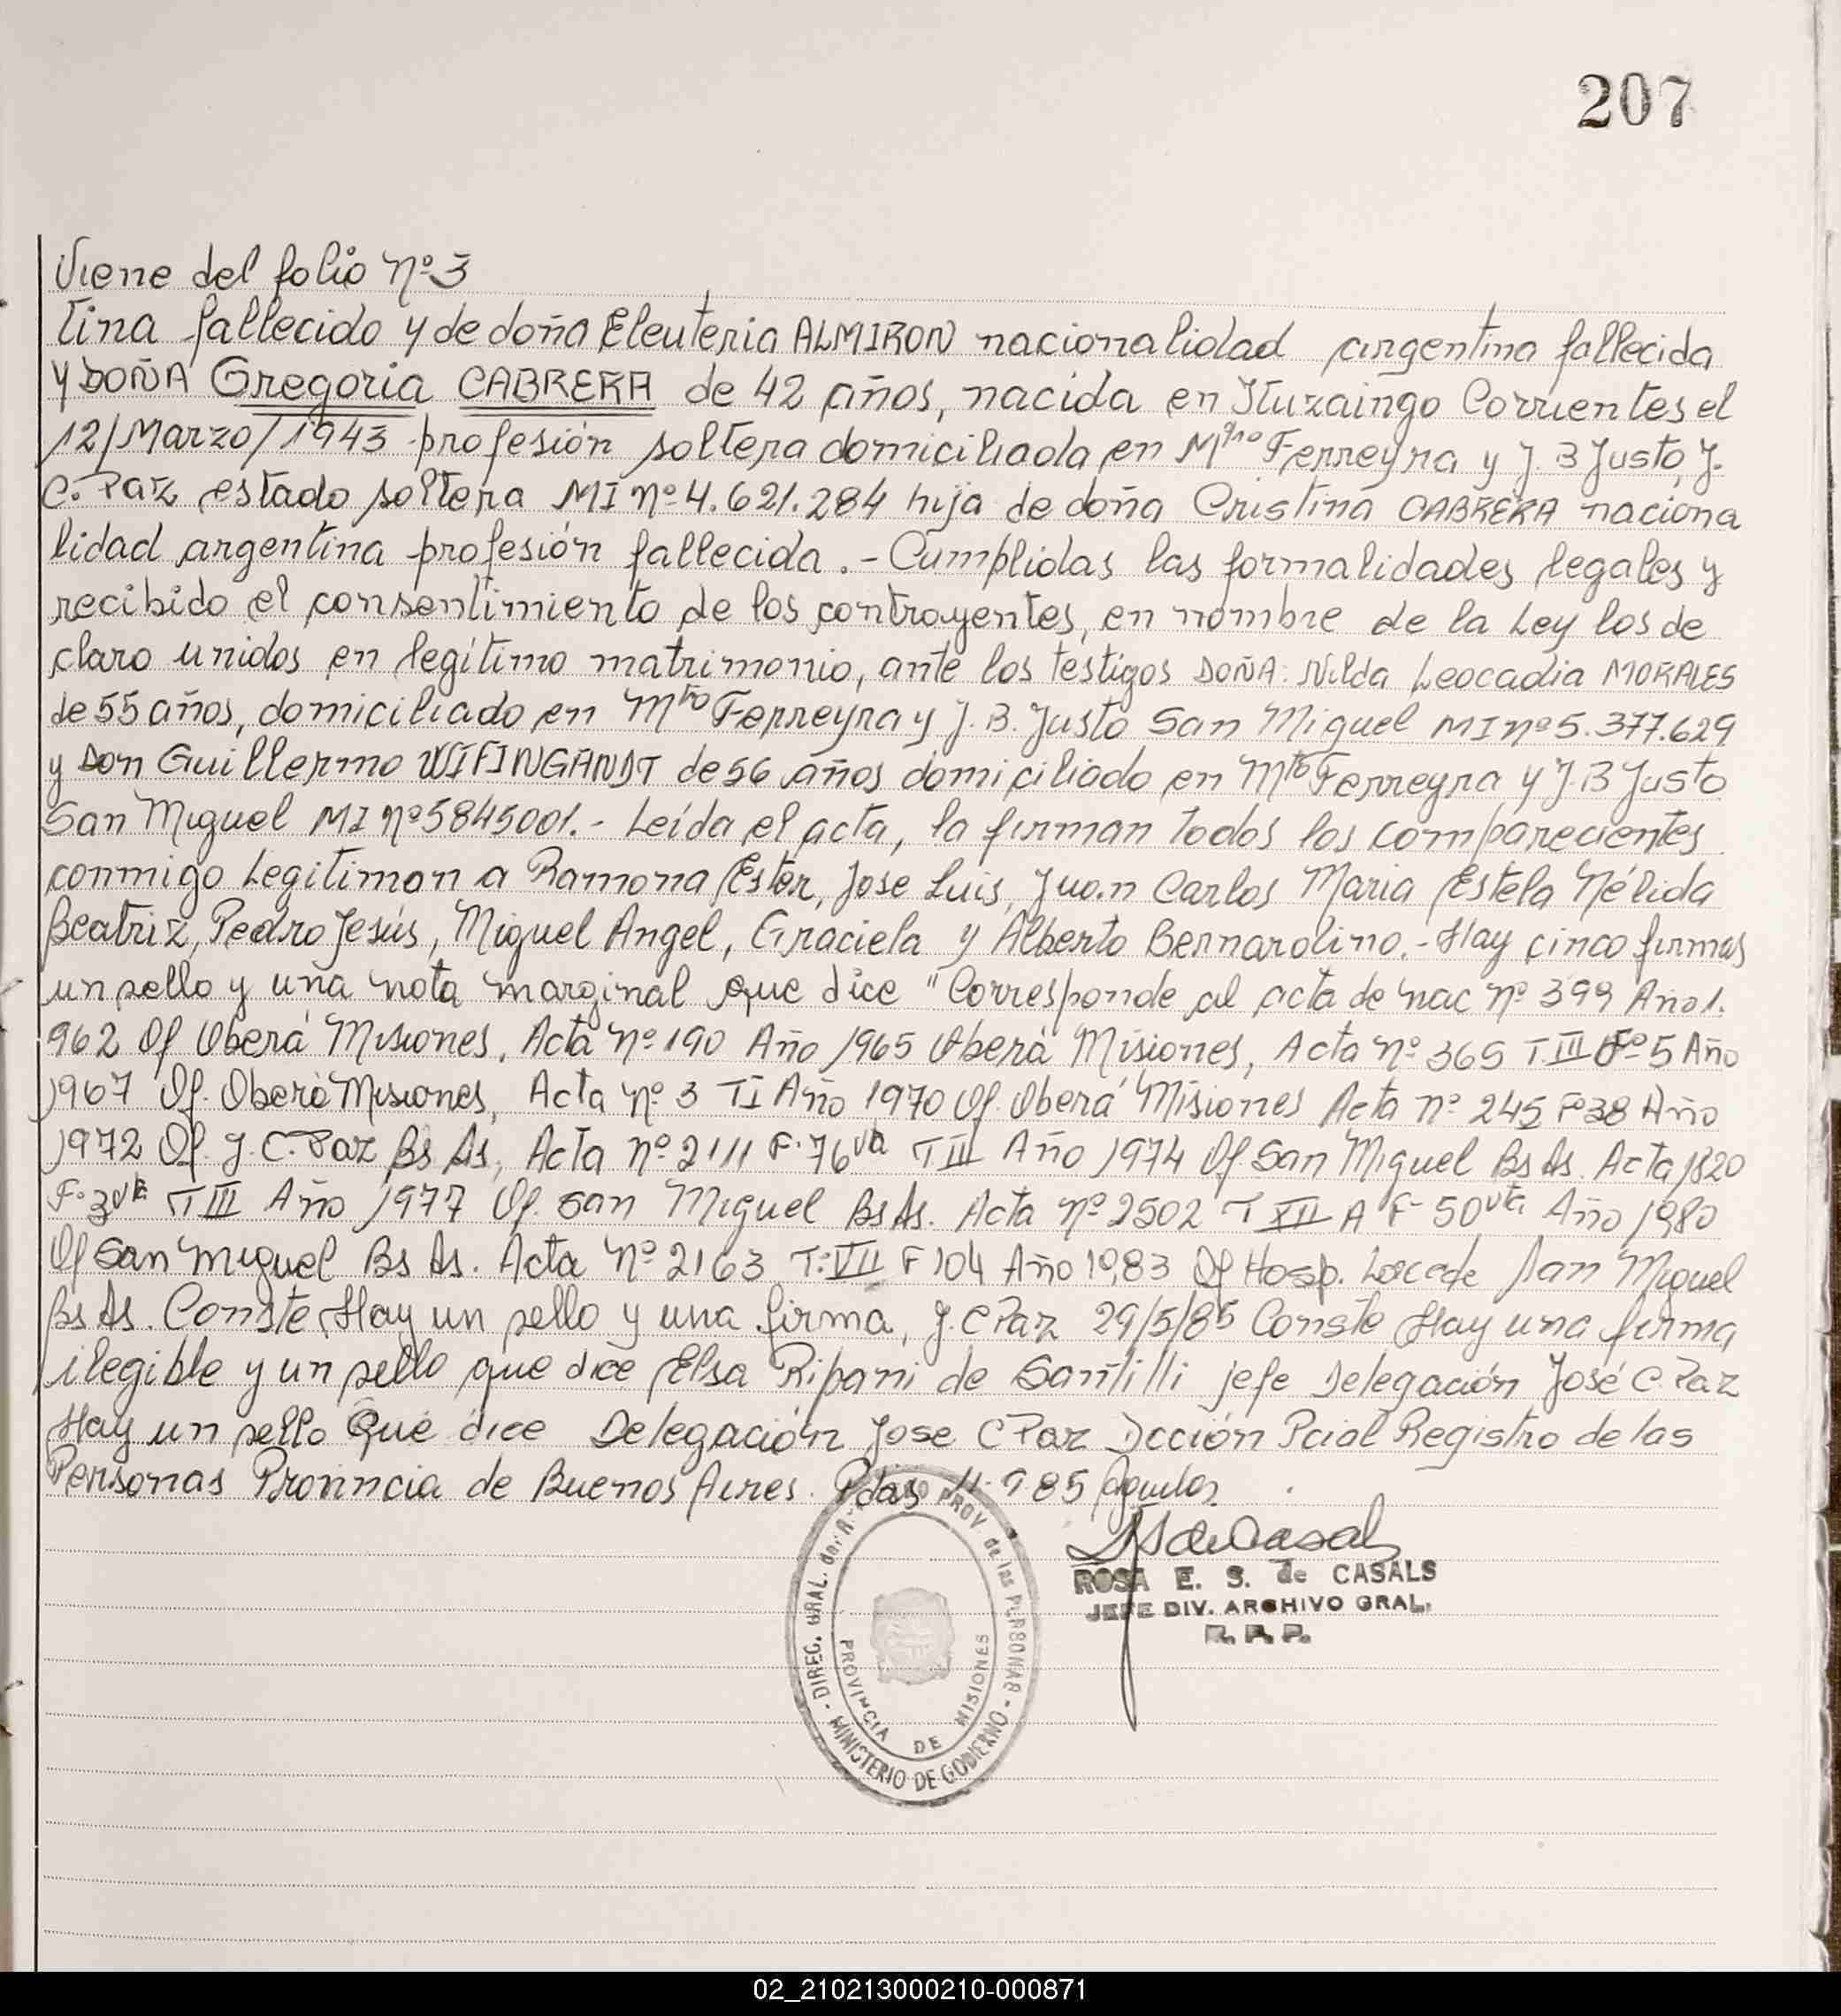 207
Viene del folio nº 3
tina fallecido y de doña Eleuteria ALMIRON nacionalidad argentina fallecida
y DOÑA Gregoria CABRERA de 42 años, nacida en Ituzaingo Corrientes el
12/Marzo/1943 profesión soltera domiciliada en Mtro Ferreyra y J. B Justo, J.
C. Paz estado soltera MI nº 4.621.284 hija de doña Cristina CABRERA naciona
lidad argentina profesión fallecida. - Cumplidas las formalidades legales y
recibido el consentimiento de los contrayentes, en nombre de la Ley los de
claro unidos en legítimo matrimonio, ante los testigos DOÑA: Nilda Leocadia MORALES
de 55 años, domiciliado en Mtro Ferreyra y J. B. Justo San Miguel MI nº 5.377.629
y Don Guillermo WIFINGANDT de 56 años domiciliado en Mtro Ferreyra y J. B Justo
San Miguel MI nº 5845001. - Leída el acta, la firman todos los comparecientes
conmigo Legitiman a Ramona Ester, Jose Luis, Juan Carlos Maria Estela Nélida
Beatriz, Pedro Jesús, Miguel Angel, Graciela y Alberto Bernardino. - Hay cinco firmas
un sello y una nota marginal que dice "Corresponde al acta de nac nº 399 Año 1.
962 Of Oberá Misiones, Acta nº 190 Año 1965 Oberá Misiones, Acta nº 365 T. III Fº 5 Año
1967 Of. Oberá Misiones, Acta nº 3 T I Año 1970 Of. Oberá Misiones Acta nº 245 Fº 38 Año
1972 Of. J. C. Paz Bs As, Acta nº 2111 F. 76 vta T III Año 1974 Of. San Miguel Bs As. Acta 1820
F. 3 vta T III Año 1977 Of. San Miguel Bs As. Acta nº 2502 T XII A F 50 vta Año 1980
Of San Miguel Bs As. Acta nº 2163 T. VII F 104 Año 1983 Of Hosp. San Miguel
Bs As. Conste, Hay un sello y una firma, J. C Paz 29/5/85 Conste Hay una firma
ilegible y un sello que dice Elsa Ripani de Santilli jefe Delegación José C. Paz
Hay un sello Que dice Delegación Jose C Paz Dcción Pcial Registro de las
Personas Provincia de Buenos Aires. Pdas 985
DIREC. GRAL. del REGISTRO PROV. de las PERSONAS - MINISTERIO DE GOBIERNO -
PROVINCIA DE MISIONES
ROSA E. S. de CASALS
JEFE DIV. ARCHIVO GRAL.
R. P. P.
02_210213000210-000871